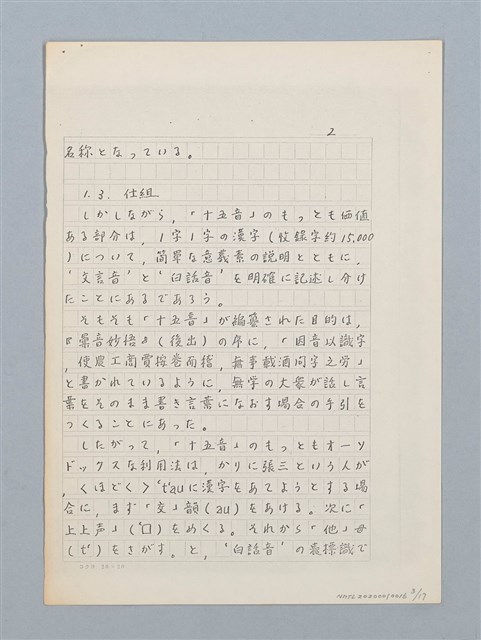 2
名称となっている。
1.3. 仕組
しかしながら,「十五音」のもっとも価値
ある部分は, 1字1字の漢字(収録字約15,000
)について, 簡単な意義素の説明とともに,
'文言音'と'白話音'を明確に記述し分け
たことにあるであろう。
そもそも「十五音」が編纂された目的は,
『彙音妙悟』(後出)の序に,「因音以識字
, 使農工商賈按巻而稽, 無事載酒問字之労」
と書かれているように, 無学の大衆が話し言
葉をそのまま書き言葉になおす場合の手引を
つくることにあった。
したがって,「十五音」のもっともオーソ
ドックスな利用法は, かりに張三という人が
, くほどく〉 t'auに漢字をあてようとする場
合に, まず「交」韻(au)をあける。次に「
上上声」(´□)をめくる。それから「他」母
(t')をさがす。と, '白話音'の裏標識で
コクヨ 20×20
NMTL20200010016 3/19